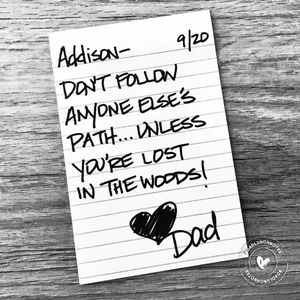 Addison- 9/20
DON'T FOLLOW
ANYONE ELSE'S
PATH...UNLESS
YOU'RE LOST
IN THE WOODS!
Dad